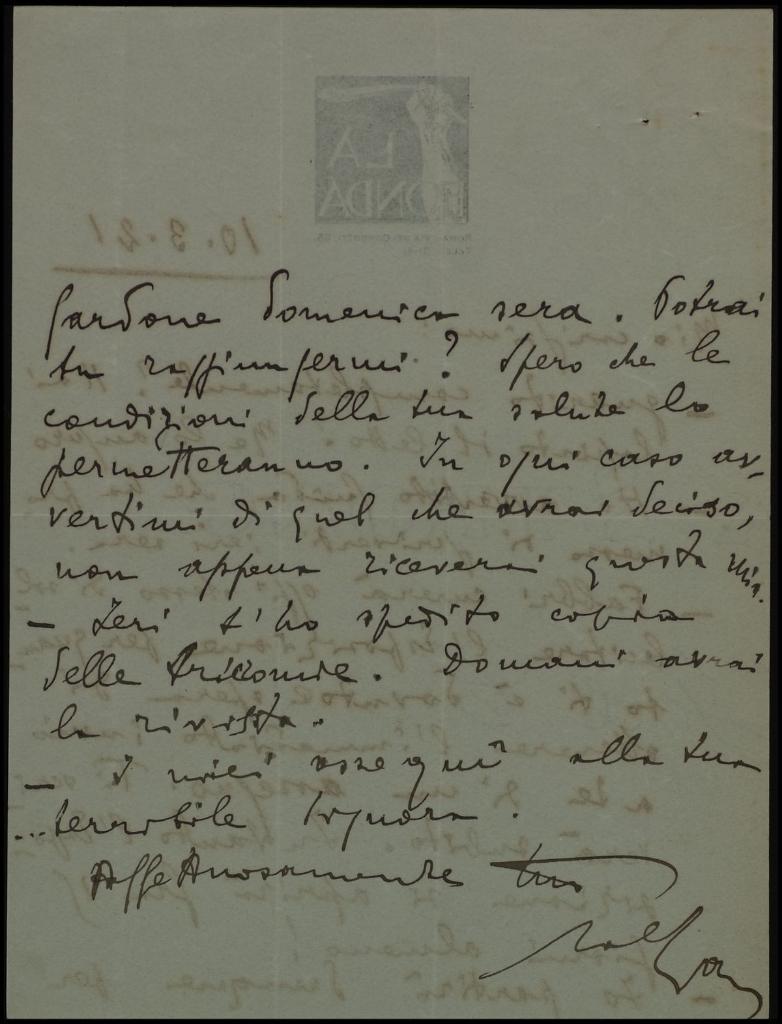 Gardone domenica sera. Potrai
tu raggiungermi? Spero che le
condizioni della tua salute lo
permetteranno. In ogni caso av-
vertimi di quel che avrai deciso,
non appena riceverai questa mia.
– Ieri t'ho spedito copia
delle tricomie. Domani avrai
la rivista.
– I miei ossequî alla tua
...terribile signora.
Affettuosamente tuo
LA
FIONDA
10.3.21